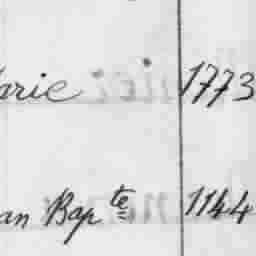 arie 1773
an Bapte 1144